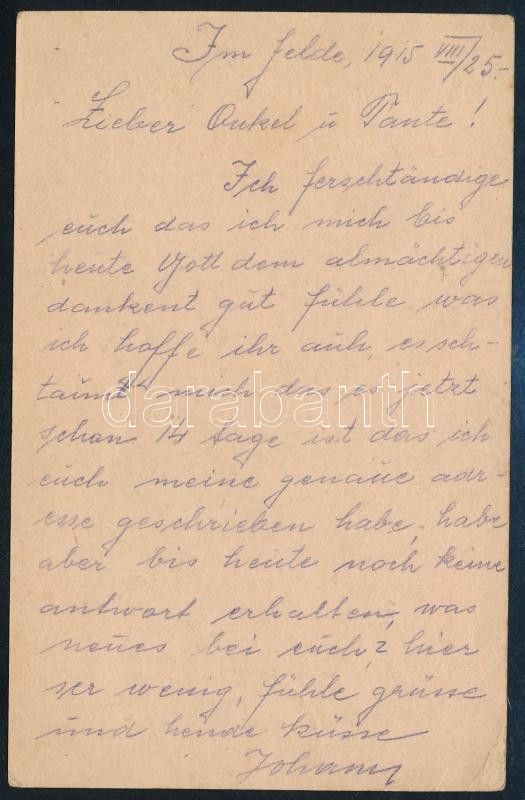 Im felde, 1915 VIII/25.-
Lieber Onkel u Tante!
Ich ferschtändige
euch das ich mich bis
heute Gott dem almächtigen
dankent gut fühle was
ich hoffe ihr auh, es sch-
taunt mich das es jetzt
schon 14 tage ist das ich
euch meine genaue adr-
esse geschrieben habe, habe
aber bis heute noch keine
antwort erhalten, was
neues bei euch? hier
ser wenig, fühle grüsse
und hende küsse
Johann
darabanth